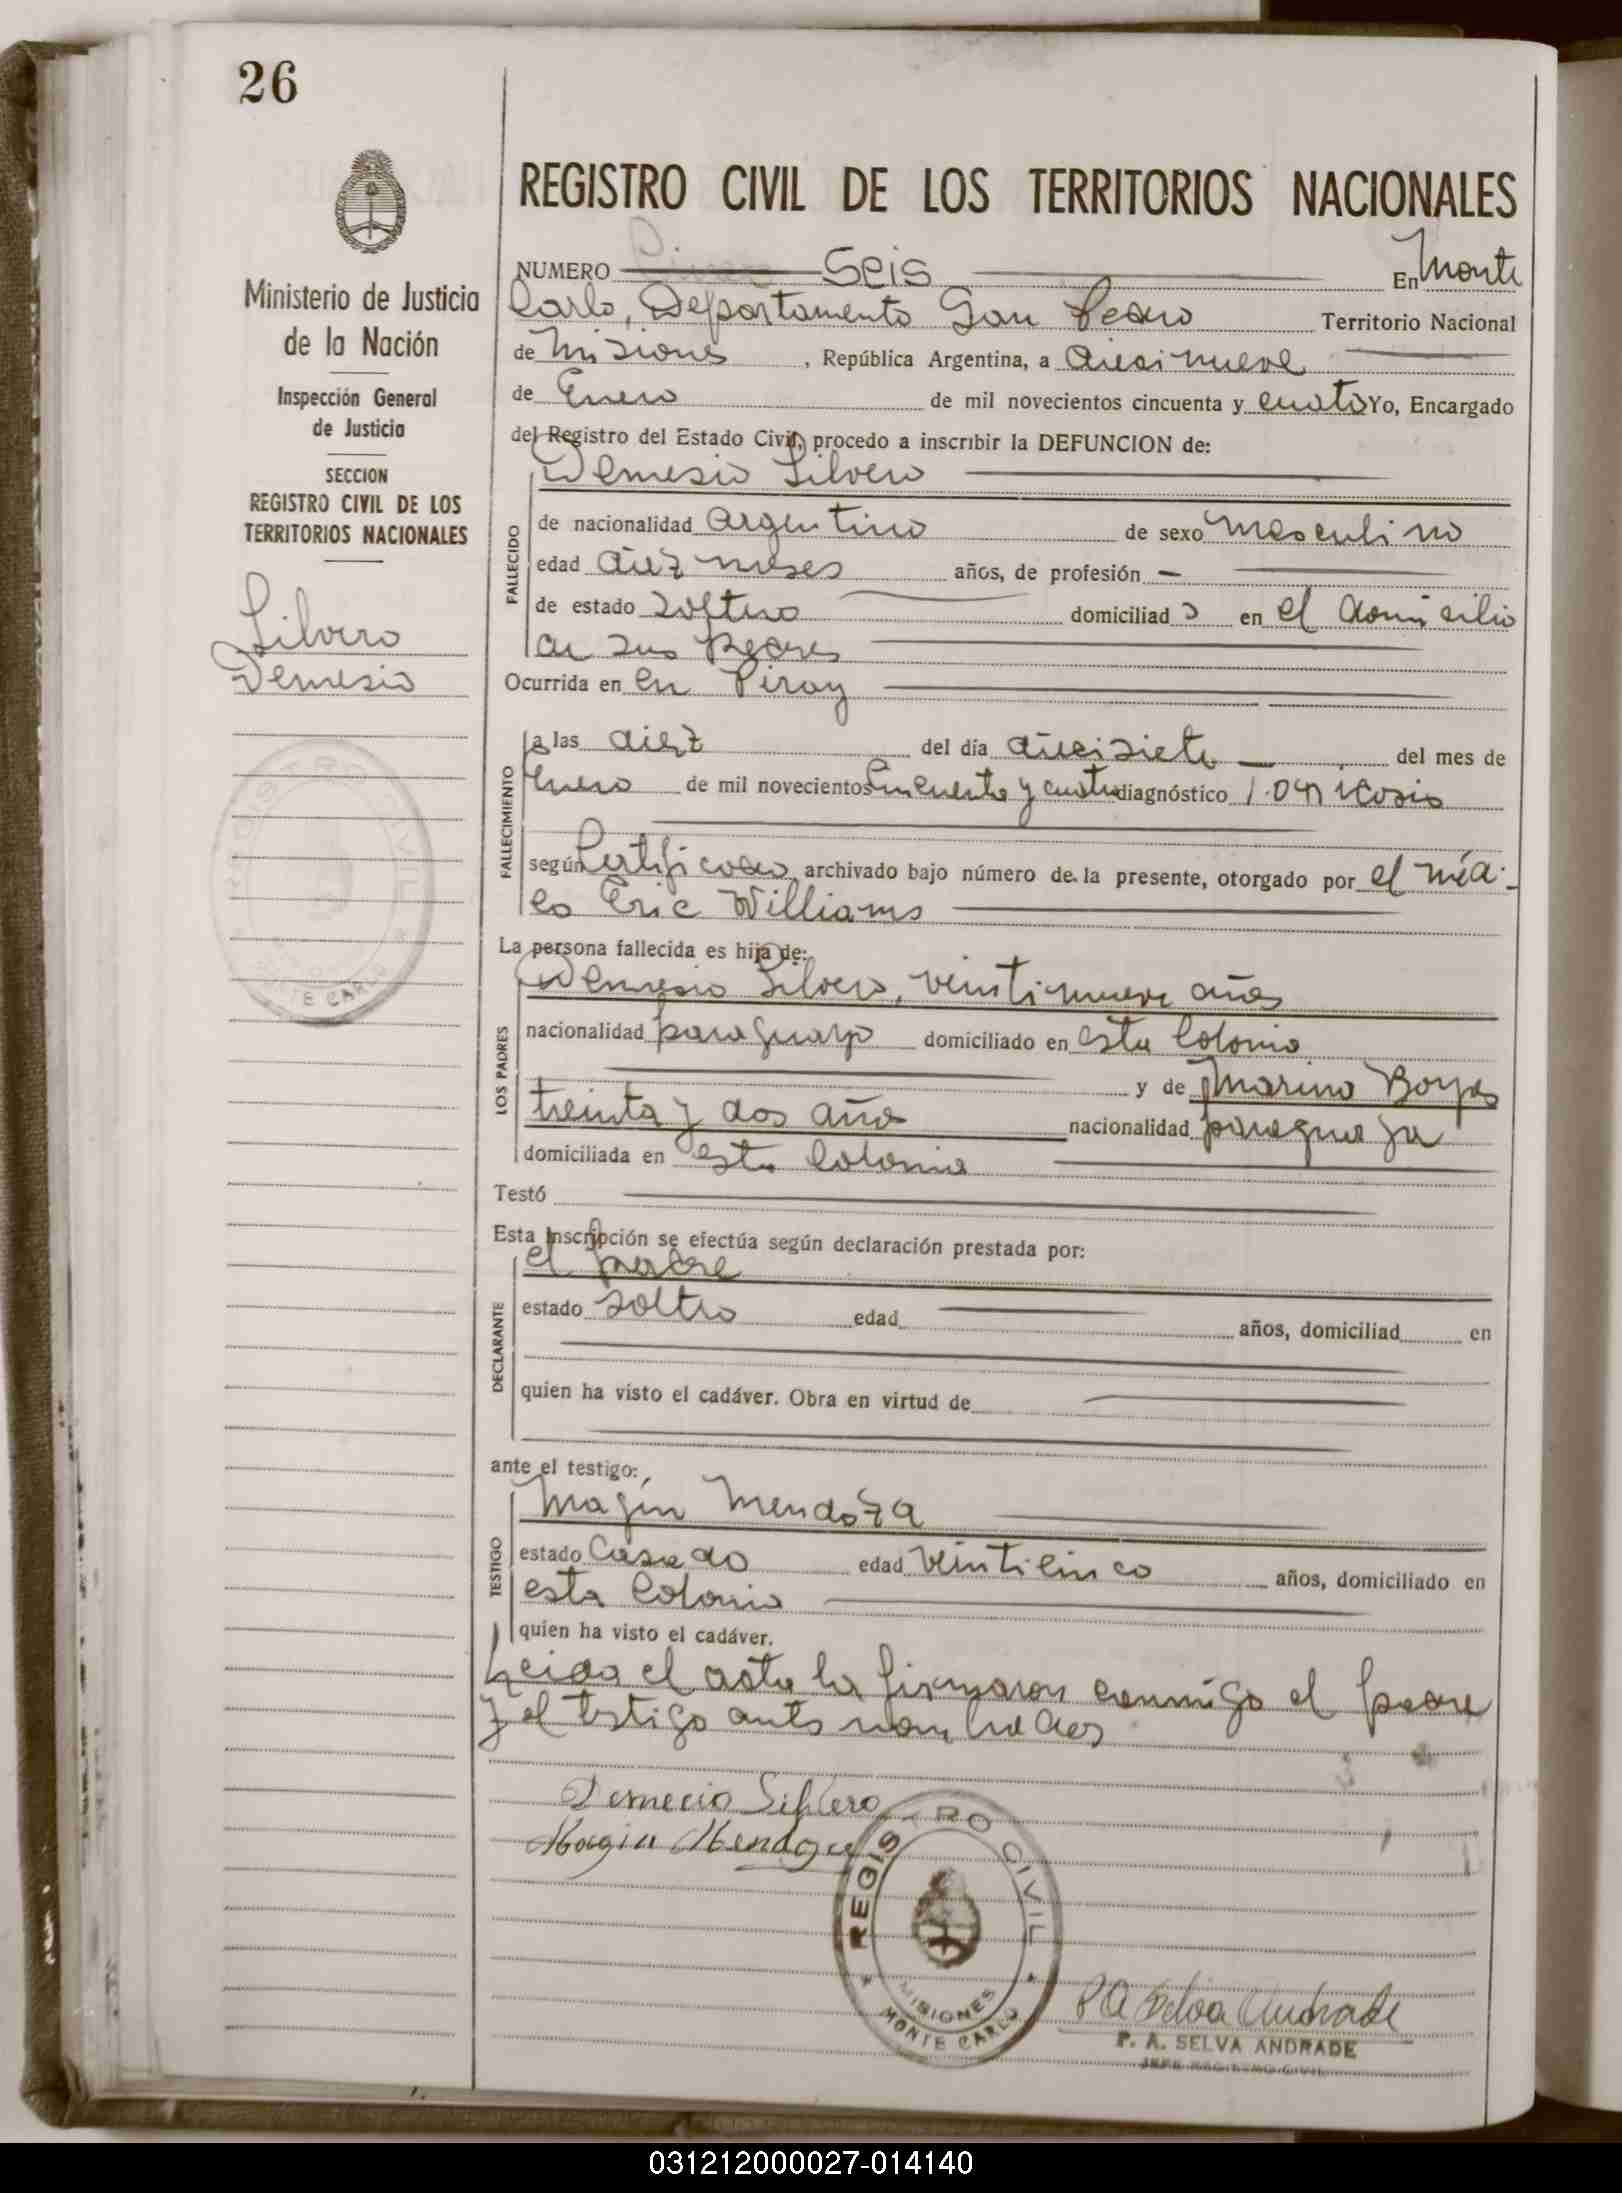 26
REGISTRO CIVIL DE LOS TERRITORIOS NACIONALES
Ministerio de Justicia
de la Nación
Inspección General
de Justicia
SECCION
REGISTRO CIVIL DE LOS
TERRITORIOS NACIONALES
Silvero
Demesio
NUMERO Seis En Monte
Carlo, Departamento San Pedro Territorio Nacional
de Misiones, República Argentina, a diecinueve
de Enero de mil novecientos cincuenta y cuatro Yo, Encargado
del Registro del Estado Civil, procedo a inscribir la DEFUNCION de:
Demesio Silvero
FALLECIDO
de nacionalidad argentino de sexo masculino
edad diez meses años, de profesión —
de estado soltero domiciliado en el domisilio
de sus padres
Ocurrida en en Piray
FALLECIMIENTO
a las diez del día diecisiete del mes de
Enero de mil novecientos cincuenta y cuatro diagnóstico
según Certificado archivado bajo número de la presente, otorgado por el médi-
co Eric Williams
La persona fallecida es hija de:
LOS PADRES
Demesio Silvero, veintinueve años
nacionalidad paraguayo domiciliado en esta Colonia
y de Marina Boyas
treinta y dos años nacionalidad paraguaya
domiciliada en esta Colonia
Testó
Esta inscripción se efectúa según declaración prestada por:
DECLARANTE
el padre
estado soltero edad años, domiciliad en
quien ha visto el cadáver. Obra en virtud de
ante el testigo:
TESTIGO
Magin Mendoza
estado Casado edad veinticinco años, domiciliado en
esta Colonia
quien ha visto el cadáver.
Leida el acta la firmaron conmigo el padre
y el testigo antes nombrados
Demecio Silvero
Magin Mendoza
REGISTRO CIVIL
MISIONES
MONTE CARLO
P A Selva Andrade
P. A. SELVA ANDRADE
JEFE REGISTRO CIVIL
031212000027-014140